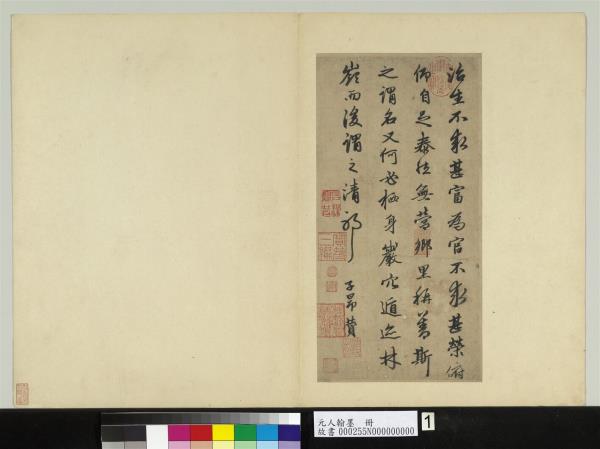 治生不求甚富為官不求甚榮俯
仰自足泰然無營鄉里稱善斯
之謂名又何必栖身巖穴遁迹林
嶺而後謂之清
子昂贊
元人翰墨 冊
故書 000255N000000000
1